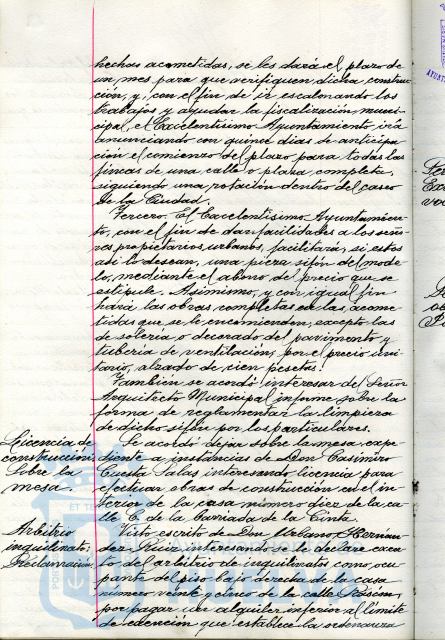 hechas acometidas, se les dará el plazo de
un mes para que verifiquen dicha construc-
ción, y, con el fin de ir escalonando los
trabajos y ayudar la fiscalización munici-
cipal, el Excelentísimo Ayuntamiento irá
anunciando con quince dias de anticipa-
ción el comienzo del plazo para todas las
fincas de una calle o plaza completa,
siguiendo una rotación dentro del casco
de la Ciudad.
Tercero. El Excelentísimo Ayuntamien-
to, con el fin de dar facilidades a los seño-
res propietarios urbanos, facilitará, si estos
asi lo desean, una pieza sifón del mode-
lo, mediante el abono de precio que se
estipule. Asimismo, y con igual fin
hará las obras completas en las acome-
tidas que se le encomienden, excepto las
de soleria o decorado del pavimento y
tuberia de ventilación, por el precio uni-
tario, alzado de cien pesetas.
Tambien se acordó interesar del Señor
Arquitecto Municipal informe sobre la
forma de reglamentar la limpieza
de dicho sifón por los particulares.
Licencia de
construcción
sobre la
mesa.
Se acordó dejar sobre la mesa expe-
diente a instancias de Don Casimiro
Cuesta Salas interesando licencia para
efectuar obras de construcción en el in-
terior de la casa número diez de la ca-
lle C. de la Barriada de la Cinta.
Arbitrio
inquilinato:
Reclamación.
Visto escrito de Don Urbano Hernán-
dez Ruiz interesando se le declare exen-
to del arbitrio de inquilinatos como ocu-
pante del piso bajo derecha de la casa
número veinte y cinco de la calle Rascón,
por pagar un alquiler inferior al limite
de exención que establece la ordenanza